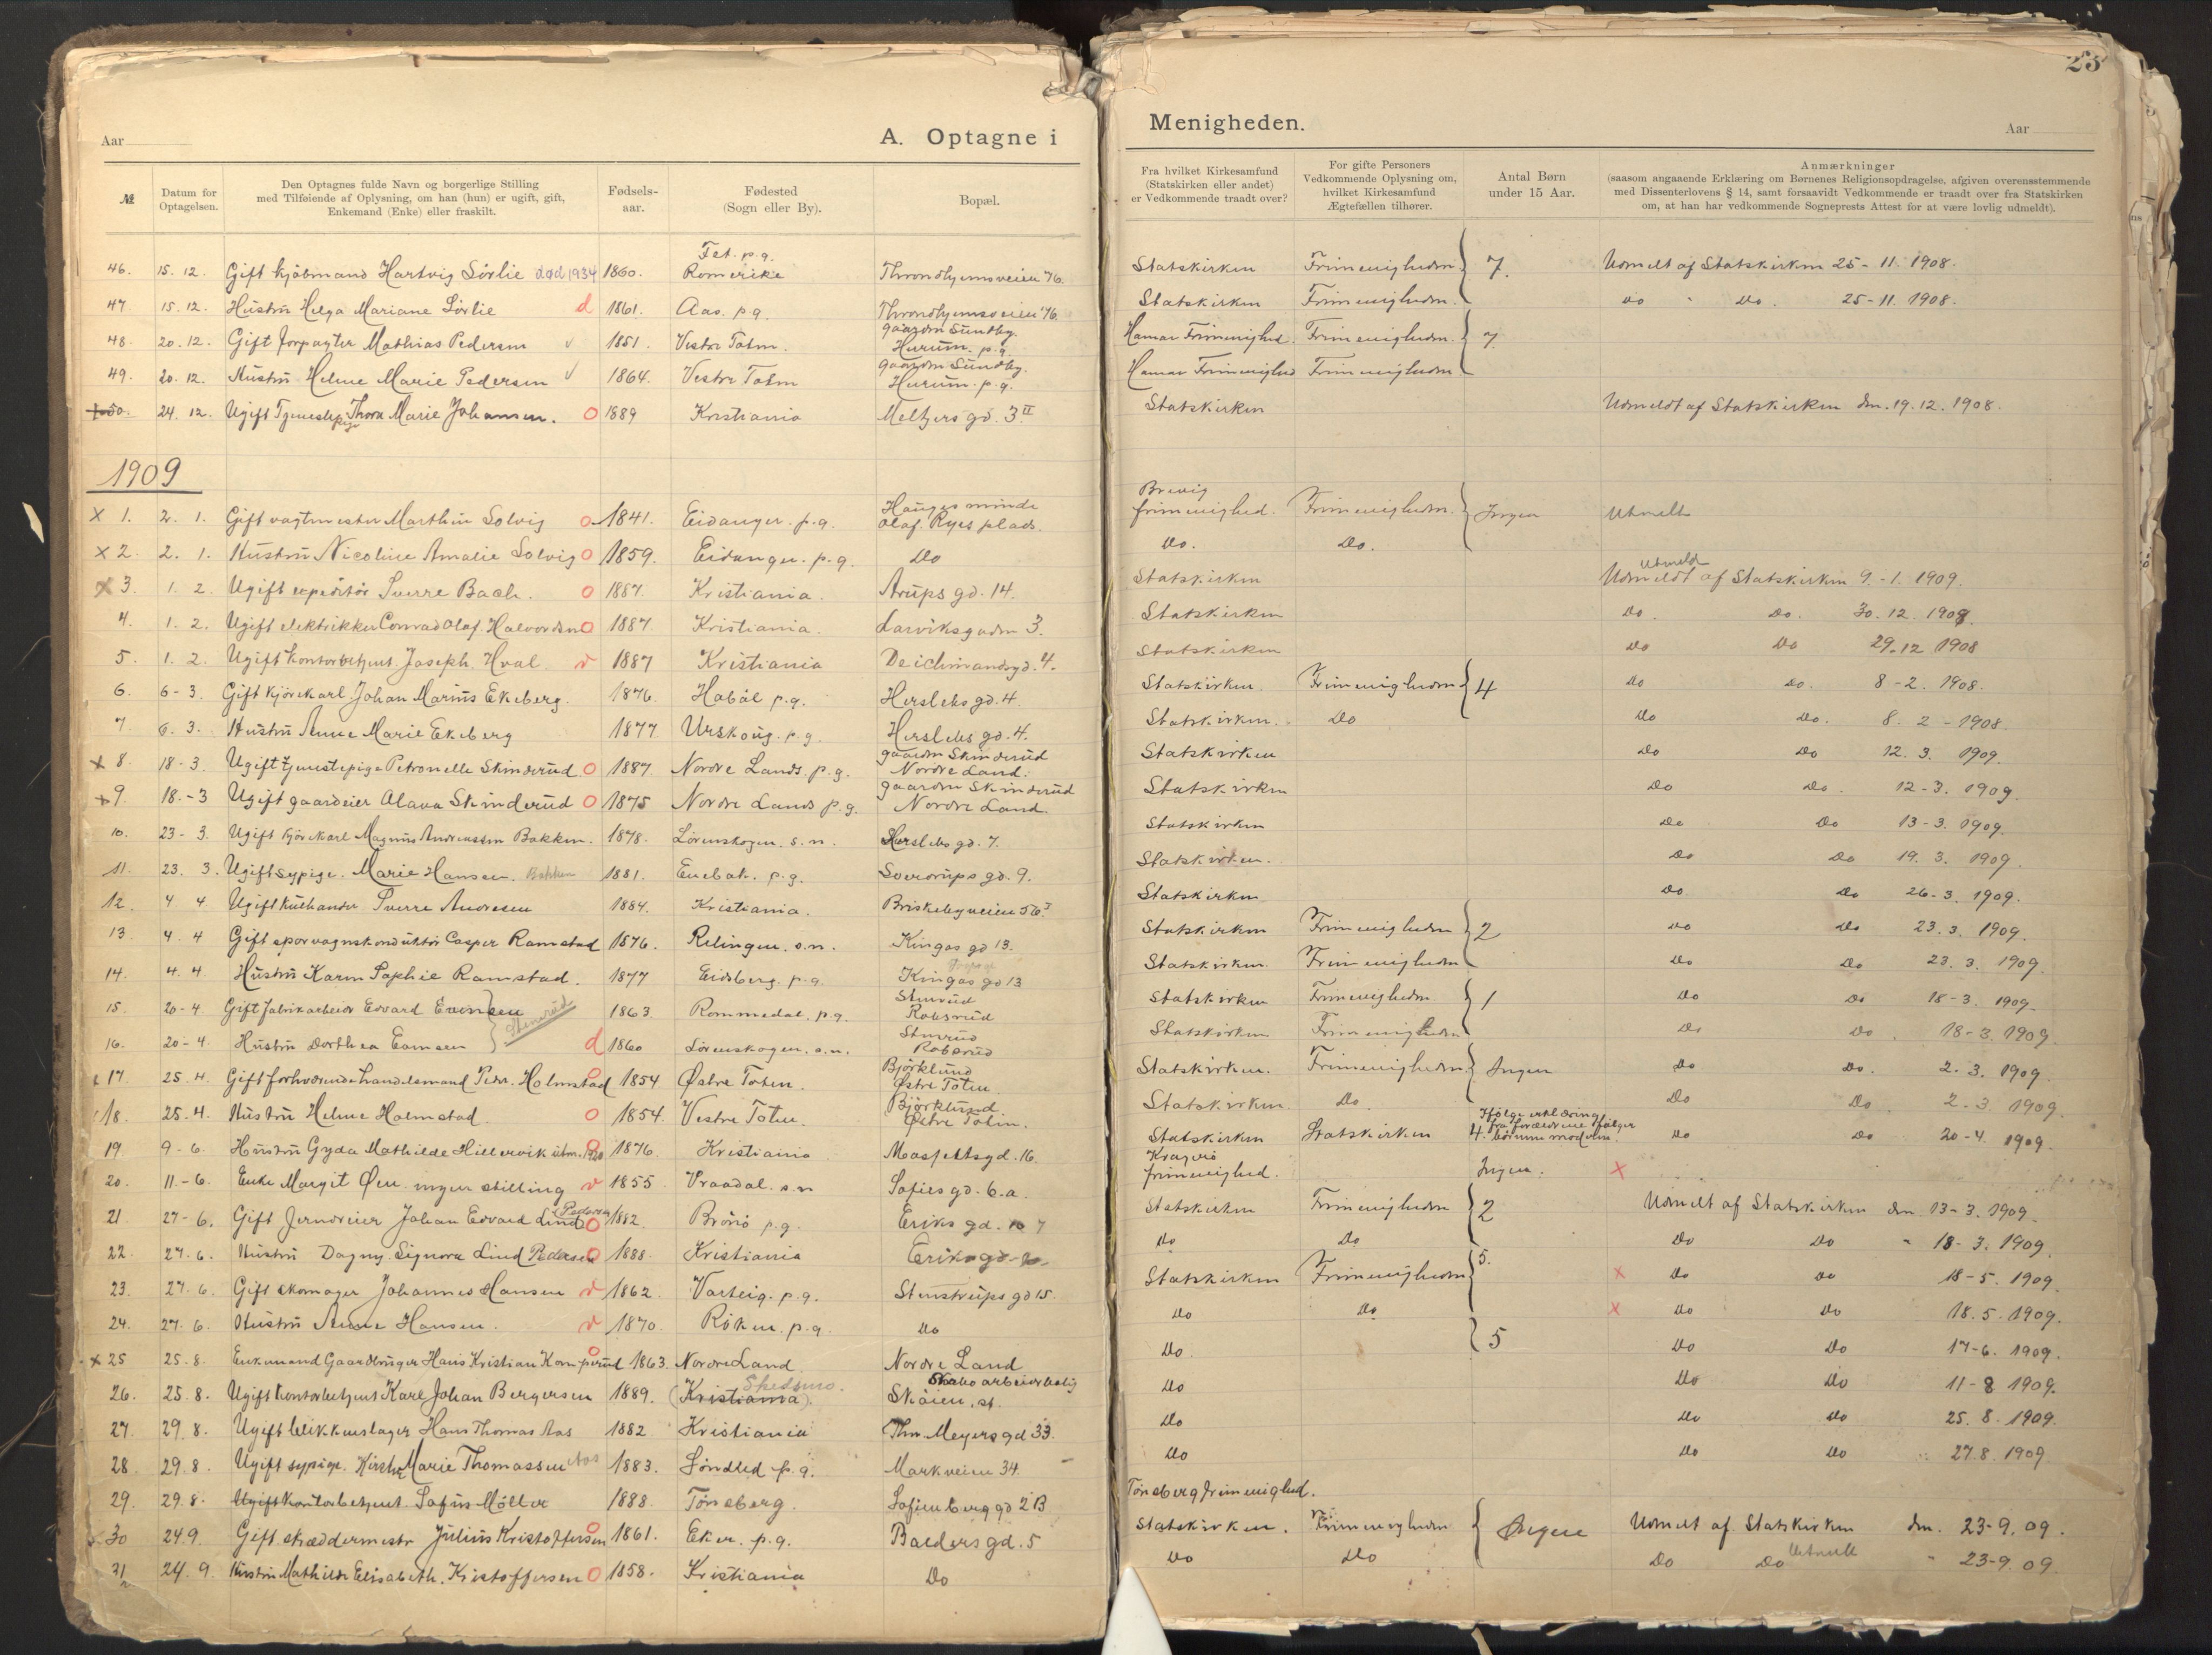 23
Aar
A. Optagne i
Menigheden.
Aar
№
Datum for Optagelsen.
Den Optagnes fulde Navn og borgerlige Stilling
med Tilføiende af Oplysning, om han (hun) er ugift, gift,
Enkemand (Enke) eller fraskilt.
Fødsels-
aar.
Fødested
(Sogn eller By).
Bopæl.
Fra hvilket Kirkesamfund
(Statskirken eller andet)
er Vedkommende traadt over?
For gifte Personers
Vedkommende Oplysning om,
hvilket Kirkesamfund
Ægtefællen tilhører.
Antal Børn
under 15 Aar.
Anmærkninger
(saasom angaaende Erklæring om Børnenes Religionsopdragelse, afgiven overensstemmende
med Dissenterlovens § 14, samt forsaavidt Vedkommende er traadt over fra Statskirken
om, at han har vedkommende Sogneprests Attest for at være lovlig udmeldt).
46. 15. 12. Gift kjöbmand Hartvig Sörlie død 1934 1860. Fet. p.g. Romerike Throndhjemsveien 76. Statskirken Frimenigheden 7. Udmelt af Statskirken 25-11. 1908.
47. 15. 12. Hustru Helga Mariane Sörlie d 1861. Aas. p.g. Throndhjemsveien 76. Statskirken Frimenigheden. do do. 25-11. 1908.
48. 20. 12. Gift forpagter Mathias Pedersen v 1851. Vestre Toten. gaarden Sundby. Hurum. p.g. Hamar Frimenighed. Frimenigheden. 7
49. 20. 12. Hustru Helene Marie Pedersen v 1864. Vestre Toten gaarden Sundby. Hurum. p.g. Hamar Frimenighed Frimenigheden.
50. 24. 12. Ugift Tjenestepige Thora Marie Johansen. O 1889 Kristiania Meltzers gd. 3 II Statskirken Udmeldt af Statskirken den. 19. 12. 1908.
1909
x 1. 2. 1. Gift vagtmester Marthin Solvig O 1841. Eidanger. p.g. Hauges minde Olaf Ryes plads. Brevig frimenighed. Frimenigheden. Ingen Utmeldt
x 2. 2. 1. Hustru Nicoline Amalie Solvig O 1859. Eidanger. p.g. Do Do. Do.
x 3. 1. 2. Ugift expeditör Sverre Bach. O 1887. Kristiania. Arups gd. 14. Statskirken Utmeldt Udmeldt af Statskirken 9.-1. 1909.
4. 1. 2. Ugift elektrikker Conrad Olaf Halvorsen O 1887. Kristiania. Larviksgaden 3. Statskirken Do. Do. 30. 12. 1908.
5. 1. 2. Ugift kontorbetjent. Joseph. Hval. v 1887 Kristiania Deichmandsgd. 4. Statskirken Do Do 29. 12 1908
6. 6-3. Gift kjörekarl Johan Marius Ekeberg. 1876. Haböl p.g. Herslebs gd. 4. Statskirken. Frimenigheden 4 Do Do. 8-2. 1908.
7 6. 3. Hustru Anne Marie Ekeberg 1877 Urskoug. p.g. Herslebs gd. 4. Statskirken. Do Do Do. 8. 2-1908.
x 8. 18-3. Ugift tjenestepige Petronelle Skinderud O 1887. Nordre Lands. p.g. gaarden Skinderud Nordre Land. Statskirken Do Do 12. 3. 1909.
x 9. 18.-3 Ugift gaardeier Olava Skinderud O 1875 Nordre Lands p.g. gaarden Skinderud Nordre Land. Statskirken Do Do. 12-3. 1909.
10. 23-3. Ugift kjörekarl Magnus Andreassen Bakken. 1878. Lörenskogen. s.n. Herslebs gd. 7. Statskirken Do Do 13-3. 1909.
11. 23. 3. Ugift sypige. Marie Hansen. Bakken 1881. Enebak. p.g. Sverdrups gd. 9. Statskirken. Do Do 19. 3. 1909.
12. 4 4. Ugift kulhandler Sverre Andresen 1884. Kristiania. Briskebyveien 56 I Statskirken Do Do 26-3. 1909.
13 4. 4 Gift sporvagnskonduktör Casper Ramstad 1876. Relingen. s.n. Kingos gd 13. Statskirken Frimenigheden 2 Do Do 23. 3. 1909.
14. 4. 4. Hustru Karen Sophie Ramstad. 1877 Eidsberg. p.g. Kingos gd 13 Statskirken. Frimenigheden Do Do 23. 3. 1909.
15. 20-4 Gift fabrikarbeider Edvard Evensen Stenrud 1863. Rommedal. p.g. Stenrud Robsrud Statskirken Frimenigheden 1 Do Do 18-3. 1909.
16. 20-4. Hustru Dorthea Evensen d 1860 Lörenskogen. s.n. Stenrud Robsrud Statskirken Frimenigheden Do Do 18-3. 1909.
17. 25. 4. Gift forhværende handelsmand Peder. Holmstad 1854 Østre Toten. Björklund Østre Toten Statskirken. Frimenigheden Ingen Do Do. 2. 3. 1909.
18. 25-4. Hustru Helene Holmstad. O 1854. Vestre Toten. Björklund. Østre Toten. Statskirken. Do. Do Do 2. 3. 1909.
19 9-6. Hustru Gyda Mathilde Hillervik utm. 1920 1876. Kristiania Maspeltsgd. 16. Statskirken Statskirken 4. Ifölge erklæring fra forældrene fölger börnene moderen. Do Do 20-4. 1909.
20. 11.-6. Enke Margit Øen ingen stilling v 1855 Vraadal. s.n Sofies gd. 6.a. Kragerö frimenighed. Ingen. x
21 27-6. Gift Jerndreier Johan Edvard Lind Pedersen O 1882. Brönö p.g. Eriks gd. 7 Statskirken Frimenigheden 2 Udmelt af Statskirken den 13-3. 1909.
22. 27. 6. Hustru Dagny. Signora Lind Pedersen O 1888. Kristiania Eriks gd. Do Do Do Do 18-3. 1909.
23. 27. 6. Gift skomager Johannes Hansen v 1862. Varteig. p.g. Stenstrups gd 15. Statskirken Frimenigheden 5. x Do Do 18-5. 1909.
24. 27. 6. Hustru Anne Hansen. v 1870. Röken. p.g. Do Do Do x Do Do 18. 5. 1909.
x 25 25. 8. Enkemand Gaardbruger Hans Kristian Kornperud O 1863. Nordre Land Nordre Land Do. 5 Do Do 17-6. 1909.
26. 25. 8. Ugift kontorbetjent Karl Johan Bergersen 1889. (Kristiania). Skedsmo. Skabo arbeiderbolig Sköien. st. Do Do Do 11-8 1909.
27. 29. 8. Ugift blikkenslager Hans Thomas Aas 1882 Kristiania Thv. Meyers gd 33. Do Do Do 25. 8. 1909.
28 29. 8. Ugift sypige. Kirstine Marie Thomassen Aas 1883. Söndled p.g. Markveien 34. Do Do Do 27. 8. 1909
29. 29. 8. Ugift kontorbetjent. Sofus Möller 1888. Tönsberg. Sofienberg gd 2 B Tönsberg frimenighed.
30 24. 9. Gift skræddermestr Julius Kristoffersen O 1861. Eker. p.g. Balders gd. 5 Statskirken. Frimenigheden Ingen Udmelt af Statskirken den. 23-9. 09.
31 24. 9. Hustru Mathilde Elisabeth. Kristoffersen O 1858. Kristiania Do Do Do Do Do Utmeldt 23-9. 09.